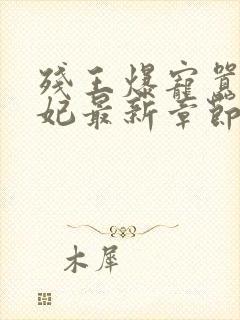 残王爆寵嚣
妃最新章節
木犀